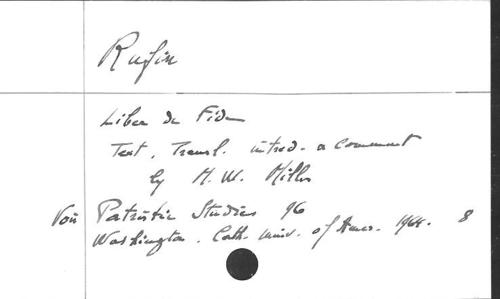 Rufin
Liber de Fide
Text, Transl. introd. a comment
by M. W. Miller
Voir Patristic Studies 96
Washington. Cath. Univ. of Amer. 1964. 8